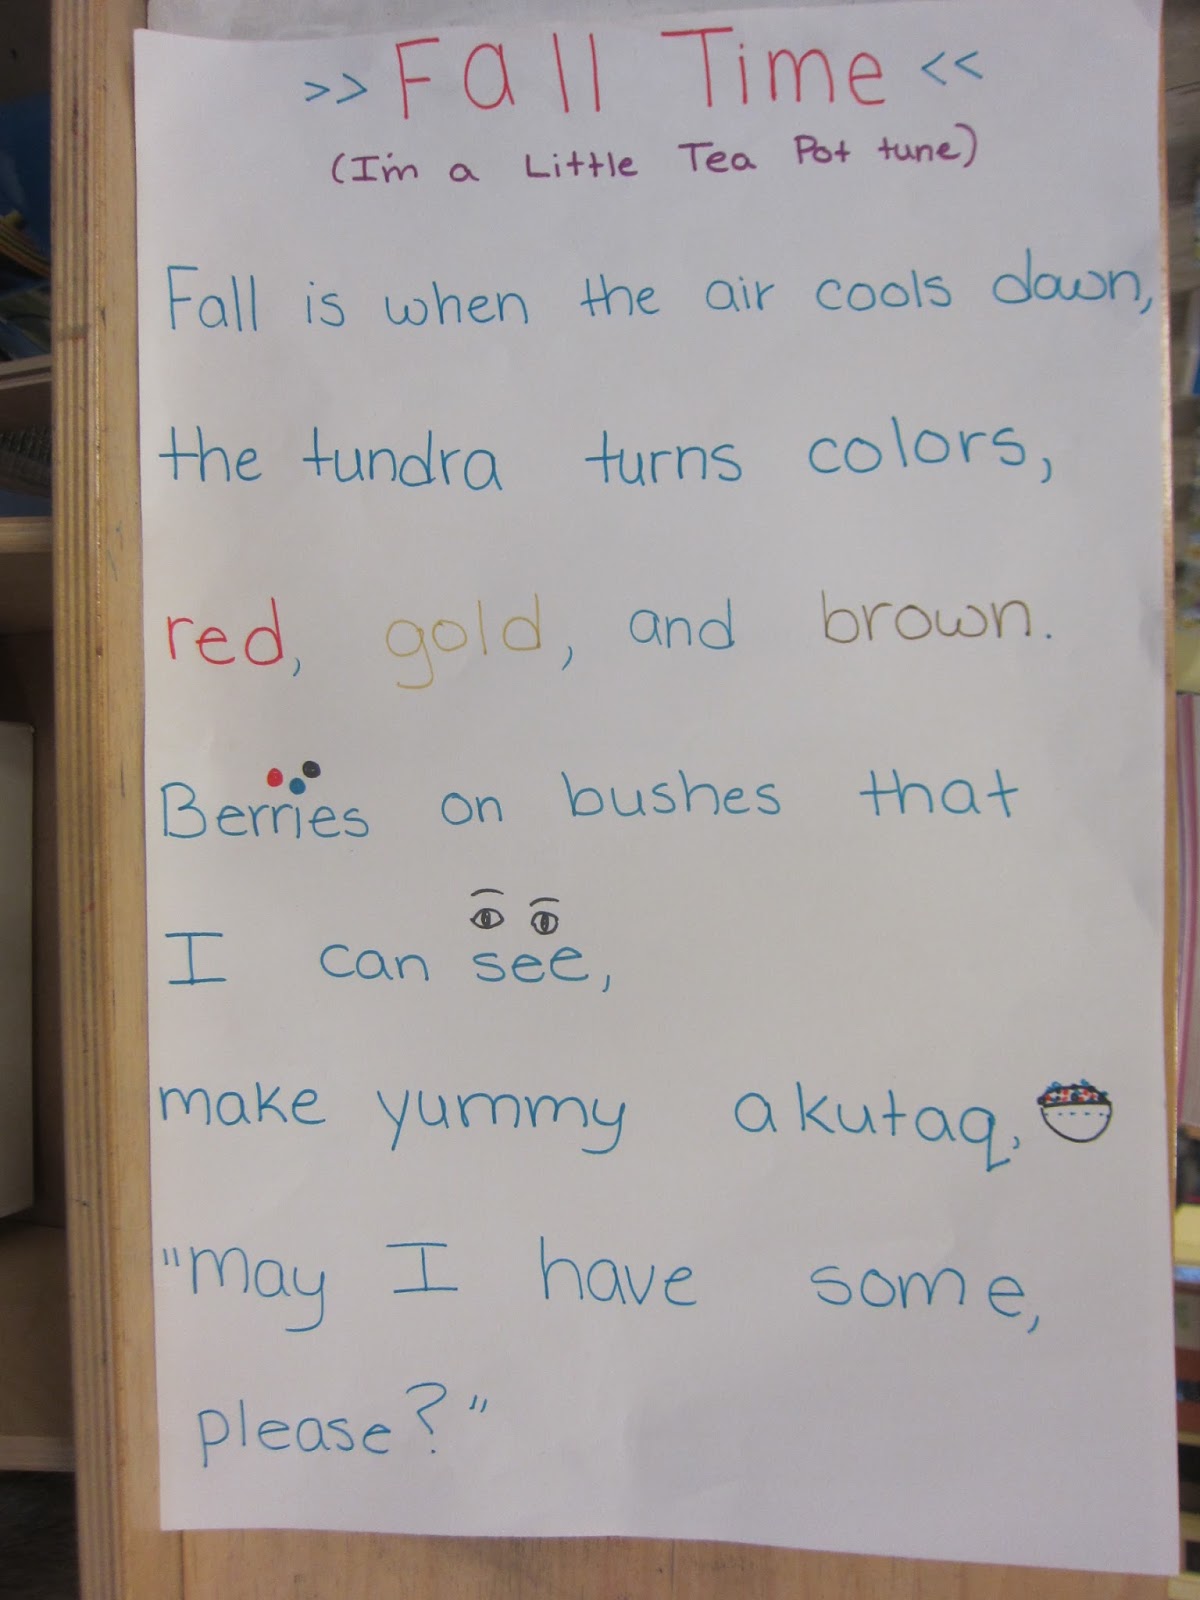 >> Fall Time <<
(I'm a Little Tea Pot tune)
Fall is when the air cools down,
the tundra turns colors,
red, gold, and brown.
Berries on bushes that
I can see,
make yummy akutaq,
"May I have some,
please?"